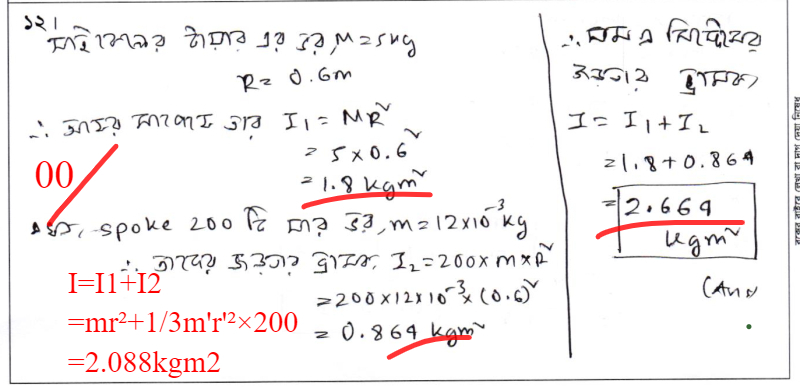 ১২।
সাইকেলের টায়ার এর ভর, M = 5kg
R = 0.6m
∴ অক্ষের সাপেক্ষে তার I₁ = MR²
= 5 x 0.6²
= 1.8 kgm²
00
spoke 200 টি যার ভর, m = 12x10⁻³ kg
∴ তাদের জড়তার ভ্রামক, I₂ = 200 x m x R²
= 200 x 12 x 10⁻³ x (0.6)²
= 0.864 kgm²
I=I1+I2
=mr²+1/3m'r'²×200
=2.088kgm2
∴ সিস্টেমের
জড়তার ভ্রামক
I = I₁ + I₂
= 1.8 + 0.864
= 2.664
kgm²
(Ans